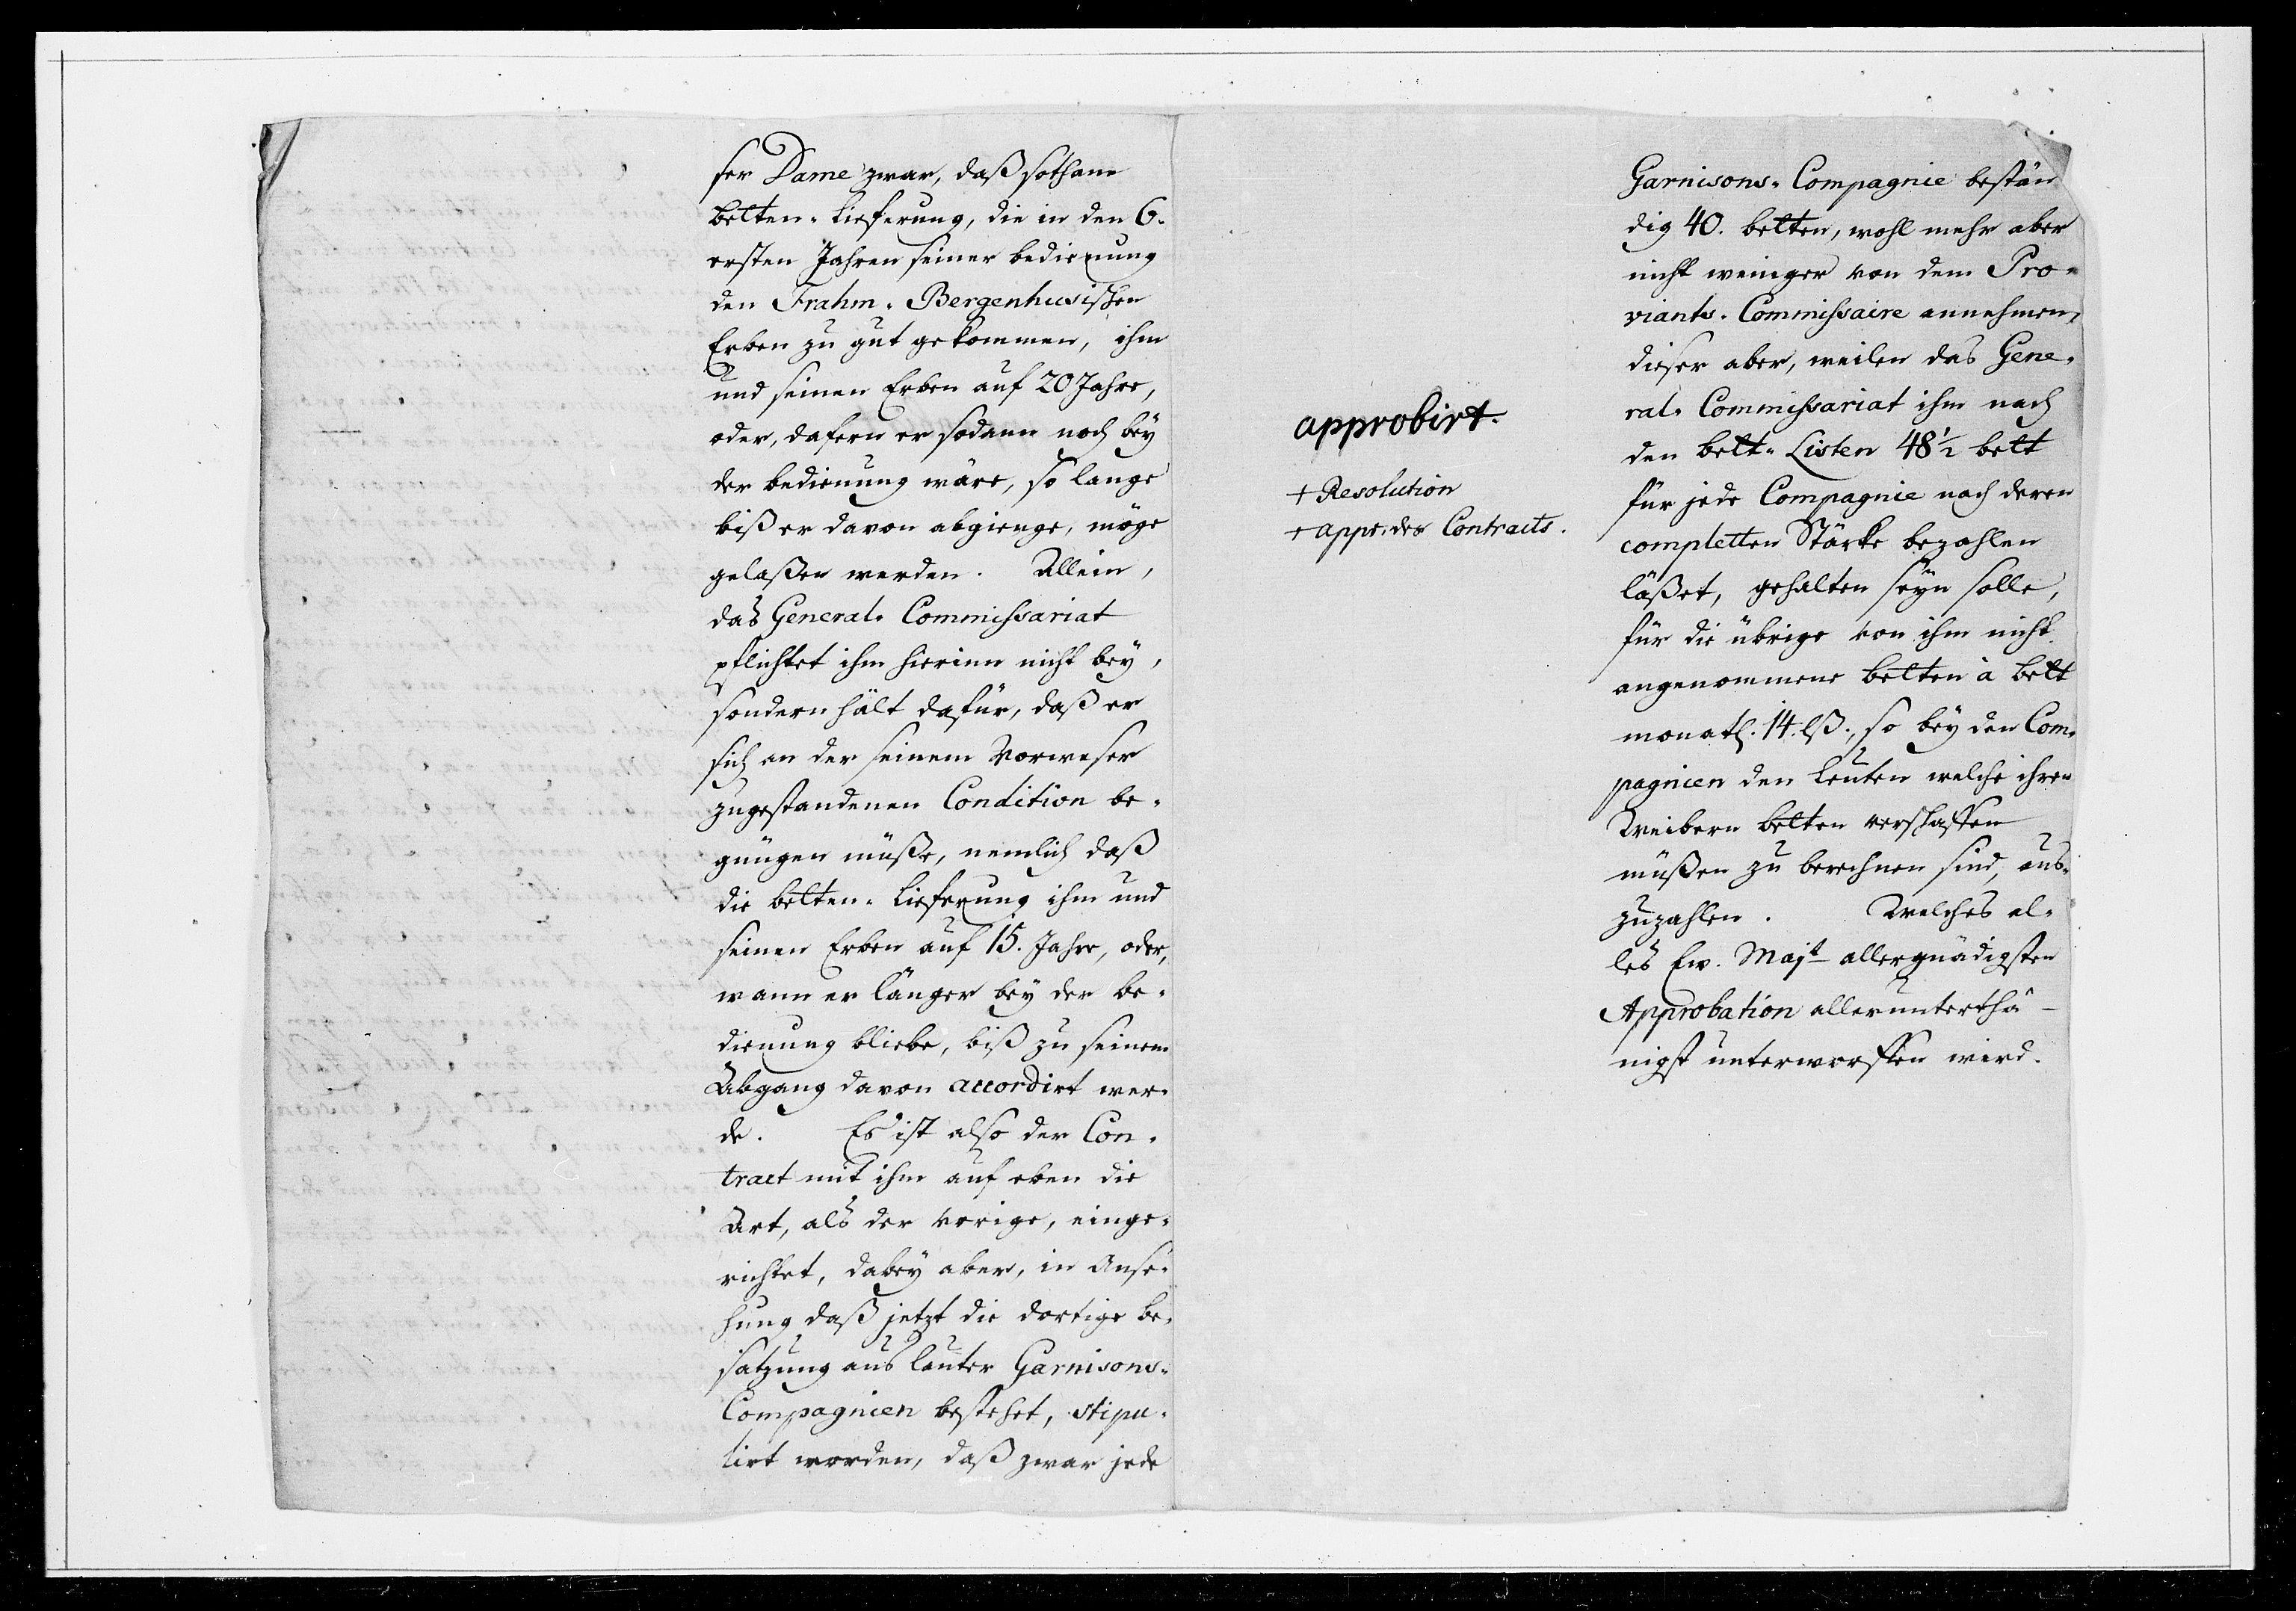 ser Dame zwar, daß sothane
betten-Lieferung, die in den 6.
ersten Jahren seiner bedienung
den Frahm-Bergenhusischen
Erben zu gut gekommen, ihm
und seinen Erben auf 20 Jahre,
oder, dafern er sodann noch bey
der bedienung wäre, so lange
biß er davon abgienge, möge
gelaßen werden. Allein,
das General-Commissariat
pflichtet ihm hierinn nicht bey,
sondern hält dafür, daß er
sich an der seinem Vorweser
zugestandenen Condition be-
gnügen müße, nemlich daß
die betten-Lieferung ihm und
seinen Erben auf 15. Jahre, oder,
wann er länger bey der be-
dienung bliebe, biß zu seinem
Abgang davon accordirt wer-
de. Es ist also der Con-
tract mit ihm auf eben die
Art, als der vorige, einge-
richtet, dabey aber, in Anse-
hung daß jetzt die dortige be-
satzung aus lauter Garnisons-
Compagnien bestehet, stipu-
lirt worden, daß zwar jede
approbirt.
+ Resolution
+ appr. des Contracts.
Garnisons-Compagnie bestän
dig 40. betten, wohl mehr aber
nicht weniger von dem Pro-
viants-Commissaire annehmen,
dieser aber, weilen das Gene-
ral-Commissariat ihm nach
den bett-Listen 48½ bett
für jede Compagnie nach deren
completten Stärke bezahlen
läßet, gehalten seyn solle,
für die übrige von ihm nicht
angenommene betten à bett
monatl. 14. lß., so bey den Com-
pagnien den Leuten welche ihren
Weibern betten verschaffen
müßen zu berechnen sind, aus-
zuzahlen. Welches al-
les Ew. Majt allergnädigsten
Approbation allerunterthä-
nigst unterworffen wird.